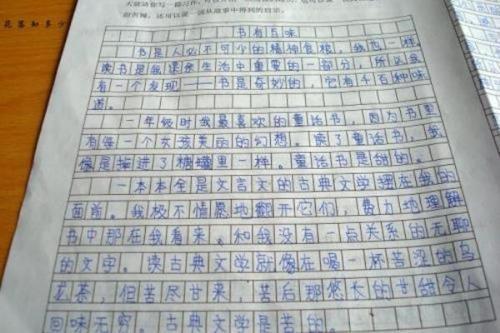 花落知多少
书有百味
书是人必不可少的精神食粮，我也一样。
读书是我课余生活中重要的一部分，所以我
有一个发现——书是奇妙的，它有千百种味
道。
一年级时我最喜欢的童话书，因为书里
有每一个女孩美丽的幻想。读了童话书，我
像是掉进了糖罐里一样。童话书是甜的。
一本本全是文言文的古典文学摆在我的
面前。我极不情愿地翻开它们，费力地理解
书中那在我看来，和我没有一点关系的无聊
的文字。读古典文学就像在喝一杯苦涩的乌
龙茶，但苦尽甘来，苦后那悠长的甘甜令人
回味无穷。古典文学是苦的。